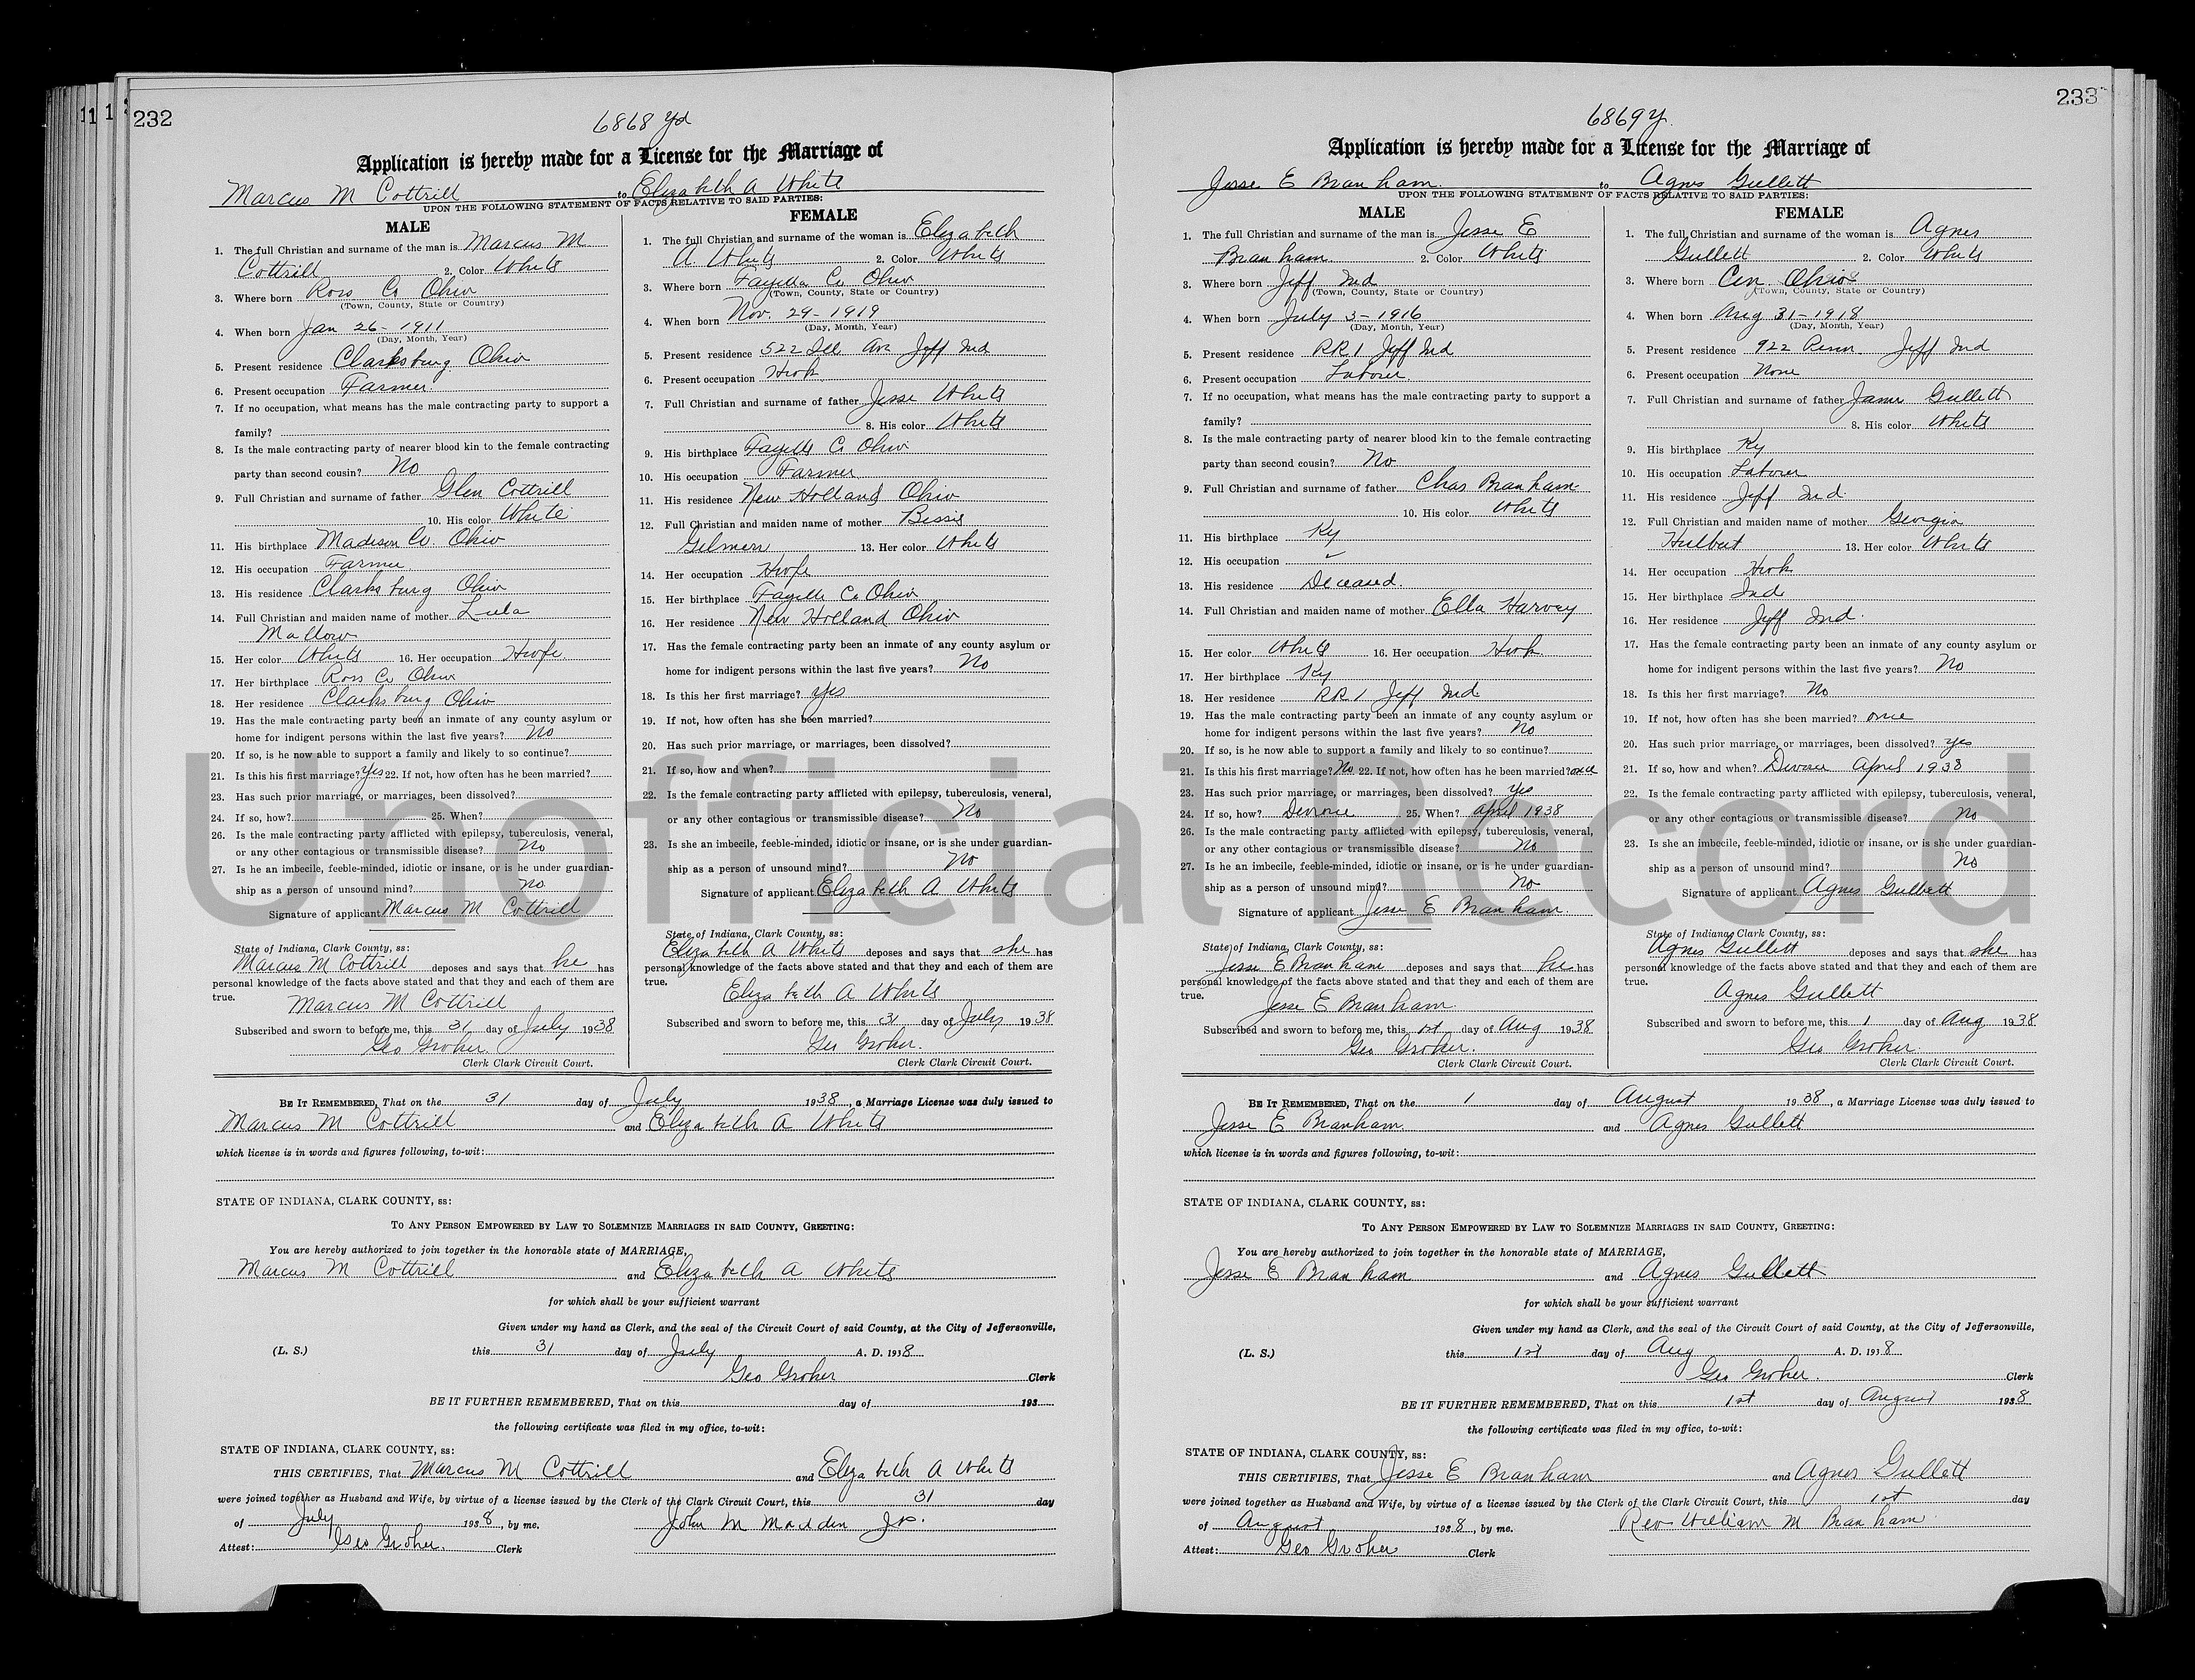 232
6868 yd
Application is hereby made for a License for the Marriage of
Marcus M Cottrill to Elizabeth A White
UPON THE FOLLOWING STATEMENT OF FACTS RELATIVE TO SAID PARTIES:
MALE
1. The full Christian and surname of the man is Marcus M
Cottrill 2. Color White
3. Where born Ross Co Ohio
(Town, County, State or Country)
4. When born Jan 26-1911
(Day, Month, Year)
5. Present residence Clarksburg Ohio
6. Present occupation Farmer
7. If no occupation, what means has the male contracting party to support a
family?
8. Is the male contracting party of nearer blood kin to the female contracting
party than second cousin? No
9. Full Christian and surname of father Glen Cottrill
10. His color White
11. His birthplace Madison Co. Ohio
12. His occupation Farmer
13. His residence Clarksburg Ohio
14. Full Christian and maiden name of mother Lula
Mallow
15. Her color White 16. Her occupation Hwife
17. Her birthplace Ross Co Ohio
18. Her residence Clarksburg Ohio
19. Has the male contracting party been an inmate of any county asylum or
home for indigent persons within the last five years? No
20. If so, is he now able to support a family and likely to so continue?
21. Is this his first marriage? Yes 22. If not, how often has he been married?
23. Has such prior marriage, or marriages, been dissolved?
24. If so, how? 25. When?
26. Is the male contracting party afflicted with epilepsy, tuberculosis, veneral,
or any other contagious or transmissible disease? No
27. Is he an imbecile, feeble-minded, idiotic or insane, or is he under guardian-
ship as a person of unsound mind? No
Signature of applicant Marcus M Cottrill
State of Indiana, Clark County, ss:
Marcus M Cottrill deposes and says that he has
personal knowledge of the facts above stated and that they and each of them are
true.
Marcus M Cottrill
Subscribed and sworn to before me, this 31 day of July 1938
Geo Groher
Clerk Clark Circuit Court.
FEMALE
1. The full Christian and surname of the woman is Elizabeth
A White 2. Color White
3. Where born Fayette Co Ohio
(Town, County, State or Country)
4. When born Nov. 29-1919
(Day, Month, Year)
5. Present residence 522 Ill Av Jeff Ind
6. Present occupation Hwk
7. Full Christian and surname of father Jesse White
8. His color White
9. His birthplace Fayette Co Ohio
10. His occupation Farmer
11. His residence New Holland Ohio
12. Full Christian and maiden name of mother Bessie
13. Her color White
14. Her occupation Hwife
15. Her birthplace Fayette Co Ohio
16. Her residence New Holland Ohio
17. Has the female contracting party been an inmate of any county asylum or
home for indigent persons within the last five years? No
18. Is this her first marriage? Yes
19. If not, how often has she been married?
20. Has such prior marriage, or marriages, been dissolved?
21. If so, how and when?
22. Is the female contracting party afflicted with epilepsy, tuberculosis, veneral,
or any other contagious or transmissible disease? No
23. Is she an imbecile, feeble-minded, idiotic or insane, or is she under guardian-
ship as a person of unsound mind? No
Signature of applicant Elizabeth A White
State of Indiana, Clark County, ss:
Elizabeth A White deposes and says that she has
personal knowledge of the facts above stated and that they and each of them are
true.
Elizabeth A White
Subscribed and sworn to before me, this 31 day of July 1938
Geo Groher.
Clerk Clark Circuit Court.
BE IT REMEMBERED, That on the 31 day of July 1938, a Marriage License was duly issued to
Marcus M Cottrill and Elizabeth A White
which license is in words and figures following, to-wit:
STATE OF INDIANA, CLARK COUNTY, ss:
TO ANY PERSON EMPOWERED BY LAW TO SOLEMNIZE MARRIAGES IN SAID COUNTY, GREETING:
You are hereby authorized to join together in the honorable state of MARRIAGE,
Marcus M Cottrill and Elizabeth A White
for which shall be your sufficient warrant
Given under my hand as Clerk, and the seal of the Circuit Court of said County, at the City of Jeffersonville,
(L. S.) this 31 day of July A. D. 1938
Geo Groher Clerk
BE IT FURTHER REMEMBERED, That on this day of 193
the following certificate was filed in my office, to-wit:
STATE OF INDIANA, CLARK COUNTY, ss:
THIS CERTIFIES, That Marcus M Cottrill and Elizabeth A White
were joined together as Husband and Wife, by virtue of a license issued by the Clerk of the Clark Circuit Court, this 31 day
of July 1938, by me. John M Madden J.P.
Attest: Geo Groher. Clerk
233
6869 y
Application is hereby made for a License for the Marriage of
Jesse E Branham. to Agnes Gullett
UPON THE FOLLOWING STATEMENT OF FACTS RELATIVE TO SAID PARTIES:
MALE
1. The full Christian and surname of the man is Jesse E
Branham. 2. Color White
3. Where born Jeff Ind
(Town, County, State or Country)
4. When born July 3-1916
(Day, Month, Year)
5. Present residence RR1 Jeff Ind
6. Present occupation Laborer.
7. If no occupation, what means has the male contracting party to support a
family?
8. Is the male contracting party of nearer blood kin to the female contracting
party than second cousin? No
9. Full Christian and surname of father Chas Branham
10. His color White
11. His birthplace Ky
12. His occupation
13. His residence Deceased.
14. Full Christian and maiden name of mother Ella Harvey
15. Her color White 16. Her occupation Hwk
17. Her birthplace Ky
18. Her residence RR1 Jeff Ind
19. Has the male contracting party been an inmate of any county asylum or
home for indigent persons within the last five years? No
20. If so, is he now able to support a family and likely to so continue?
21. Is this his first marriage? No 22. If not, how often has he been married? once
23. Has such prior marriage, or marriages, been dissolved? Yes
24. If so, how? Divorce 25. When? April 1938
26. Is the male contracting party afflicted with epilepsy, tuberculosis, veneral,
or any other contagious or transmissible disease? No
27. Is he an imbecile, feeble-minded, idiotic or insane, or is he under guardian-
ship as a person of unsound mind? No
Signature of applicant Jesse E Branham
State of Indiana, Clark County, ss:
Jesse E Branham deposes and says that he has
personal knowledge of the facts above stated and that they and each of them are
true.
Jesse E Branham
Subscribed and sworn to before me, this 1st day of Aug 1938
Geo Groher.
Clerk Clark Circuit Court.
FEMALE
1. The full Christian and surname of the woman is Agnes
Gullett 2. Color White
3. Where born Cin Ohio
(Town, County, State or Country)
4. When born Aug 31-1918
(Day, Month, Year)
5. Present residence 922 Penn Jeff Ind
6. Present occupation None
7. Full Christian and surname of father James Gullett
8. His color White
9. His birthplace Ky
10. His occupation Laborer
11. His residence Jeff Ind.
12. Full Christian and maiden name of mother Georgia
Hulbert 13. Her color White
14. Her occupation Hwk
15. Her birthplace Ind
16. Her residence Jeff Ind.
17. Has the female contracting party been an inmate of any county asylum or
home for indigent persons within the last five years? No
18. Is this her first marriage? No
19. If not, how often has she been married? once
20. Has such prior marriage, or marriages, been dissolved? yes
21. If so, how and when? Divorce April 1938
22. Is the female contracting party afflicted with epilepsy, tuberculosis, veneral,
or any other contagious or transmissible disease? No
23. Is she an imbecile, feeble-minded, idiotic or insane, or is she under guardian-
ship as a person of unsound mind? No
Signature of applicant Agnes Gullett
State of Indiana, Clark County, ss:
Agnes Gullett deposes and says that she has
personal knowledge of the facts above stated and that they and each of them are
true.
Agnes Gullett
Subscribed and sworn to before me, this 1 day of Aug 1938.
Geo Groher.
Clerk Clark Circuit Court.
BE IT REMEMBERED, That on the 1 day of August 1938, a Marriage License was duly issued to
Jesse E Branham and Agnes Gullett
which license is in words and figures following, to-wit:
STATE OF INDIANA, CLARK COUNTY, ss:
TO ANY PERSON EMPOWERED BY LAW TO SOLEMNIZE MARRIAGES IN SAID COUNTY, GREETING:
You are hereby authorized to join together in the honorable state of MARRIAGE,
Jesse E Branham and Agnes Gullett
for which shall be your sufficient warrant
Given under my hand as Clerk, and the seal of the Circuit Court of said County, at the City of Jeffersonville,
(L. S.) this 1st day of Aug A. D. 1938
Geo Groher. Clerk
BE IT FURTHER REMEMBERED, That on this 1st day of August 1938
the following certificate was filed in my office, to-wit:
STATE OF INDIANA, CLARK COUNTY, ss:
THIS CERTIFIES, That Jesse E Branham and Agnes Gullett
were joined together as Husband and Wife, by virtue of a license issued by the Clerk of the Clark Circuit Court, this 1st day
of August 1938, by me. Rev William M Branham
Attest: Geo Groher Clerk
Unofficial Record